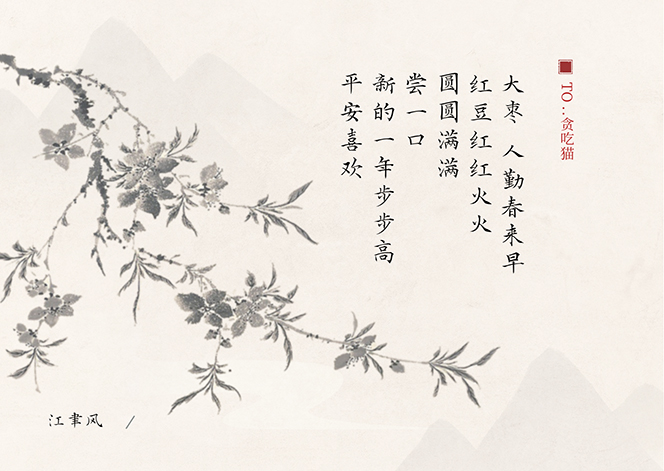 TO..贪吃猫
大枣、人勤春来早
红豆红红火火
圆圆满满
尝一口
新的一年步步高
平安喜欢
江聿风 /